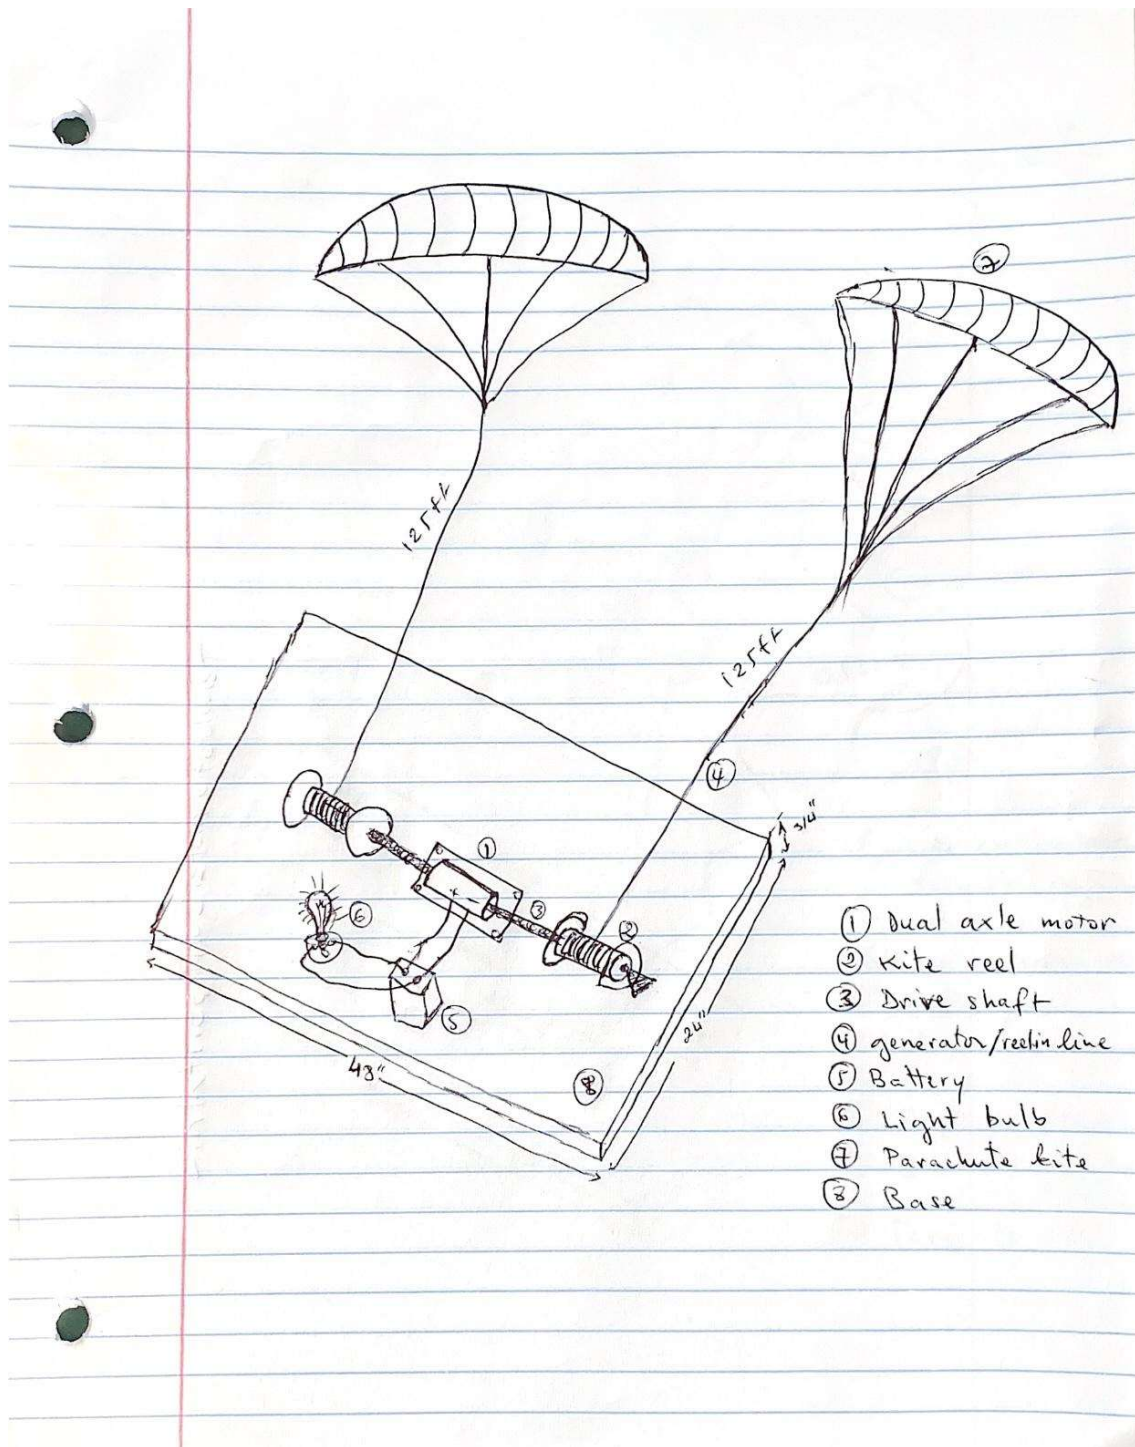 7
125ft
125ft
4
3/4"
1
6
3
2
5
24"
48"
8
① Dual axle motor
② Kite reel
③ Drive shaft
④ generator/reelin line
⑤ Battery
⑥ Light bulb
⑦ Parachute kite
⑧ Base
+ -